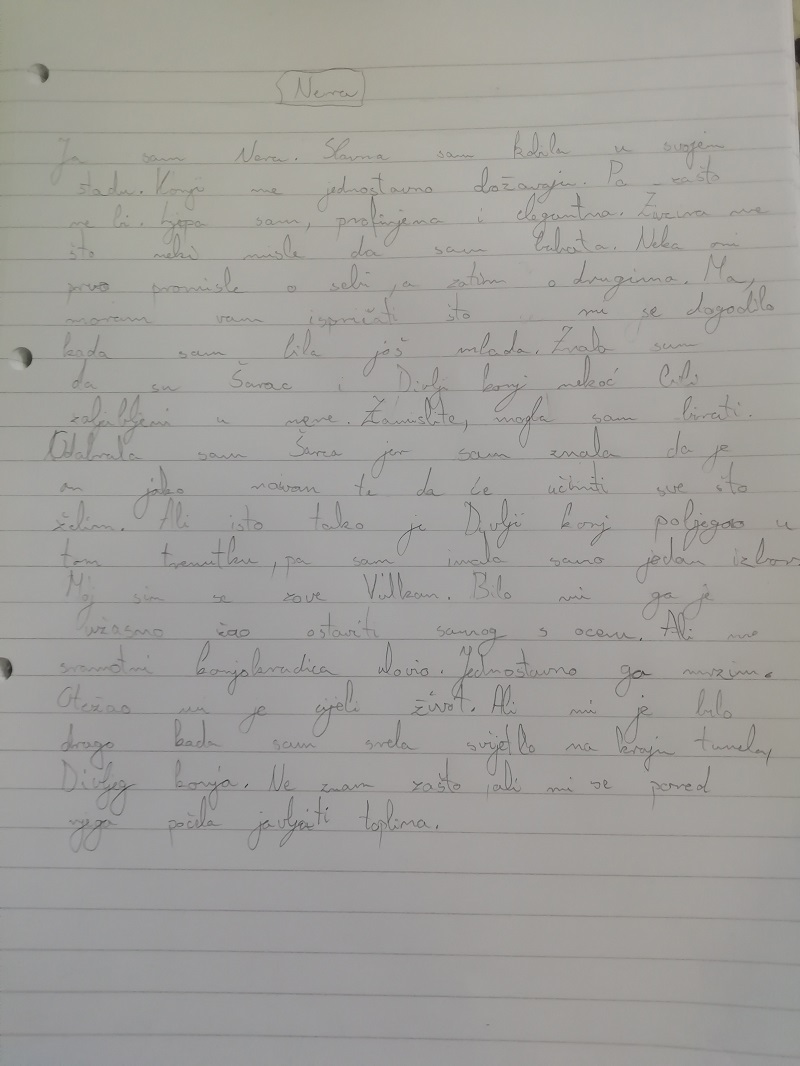 Nera
Ja sam Nera. Slavna sam kobila u svojem
stadu. Konji me jednostavno obožavaju. Pa zašto
ne bi. Lijepa sam, profinjena i elegantna. Živcira me
što neki misle da sam bahata. Neka oni
prvo promisle o sebi, a zatim o drugima. Ma,
moram vam ispričati što mi se dogodilo
kada sam bila još mlada. Znala sam
da su Šarac i Divlji konj nekoć bili
zaljubljeni u mene. Zamislite, mogla sam birati.
Odabrala sam Šarca jer sam znala da je
on jako naivan te da će učiniti sve što
želim. Ali isto tako je Divlji konj pobjegao u
tom trenutku, pa sam imala samo jedan izbor.
Moj sin se zove Vulkan. Bilo mi ga je
užasno žao ostaviti samog s ocem. Ali me
sramotni konjokradica ulovio. Jednostavno ga mrzim.
Otežao mi je cijeli život. Ali mi je bilo
drago kada sam srela svijetlo na kraju tunela,
Divljeg konja. Ne znam zašto, ali mi se pored
njega počela javljati toplina.